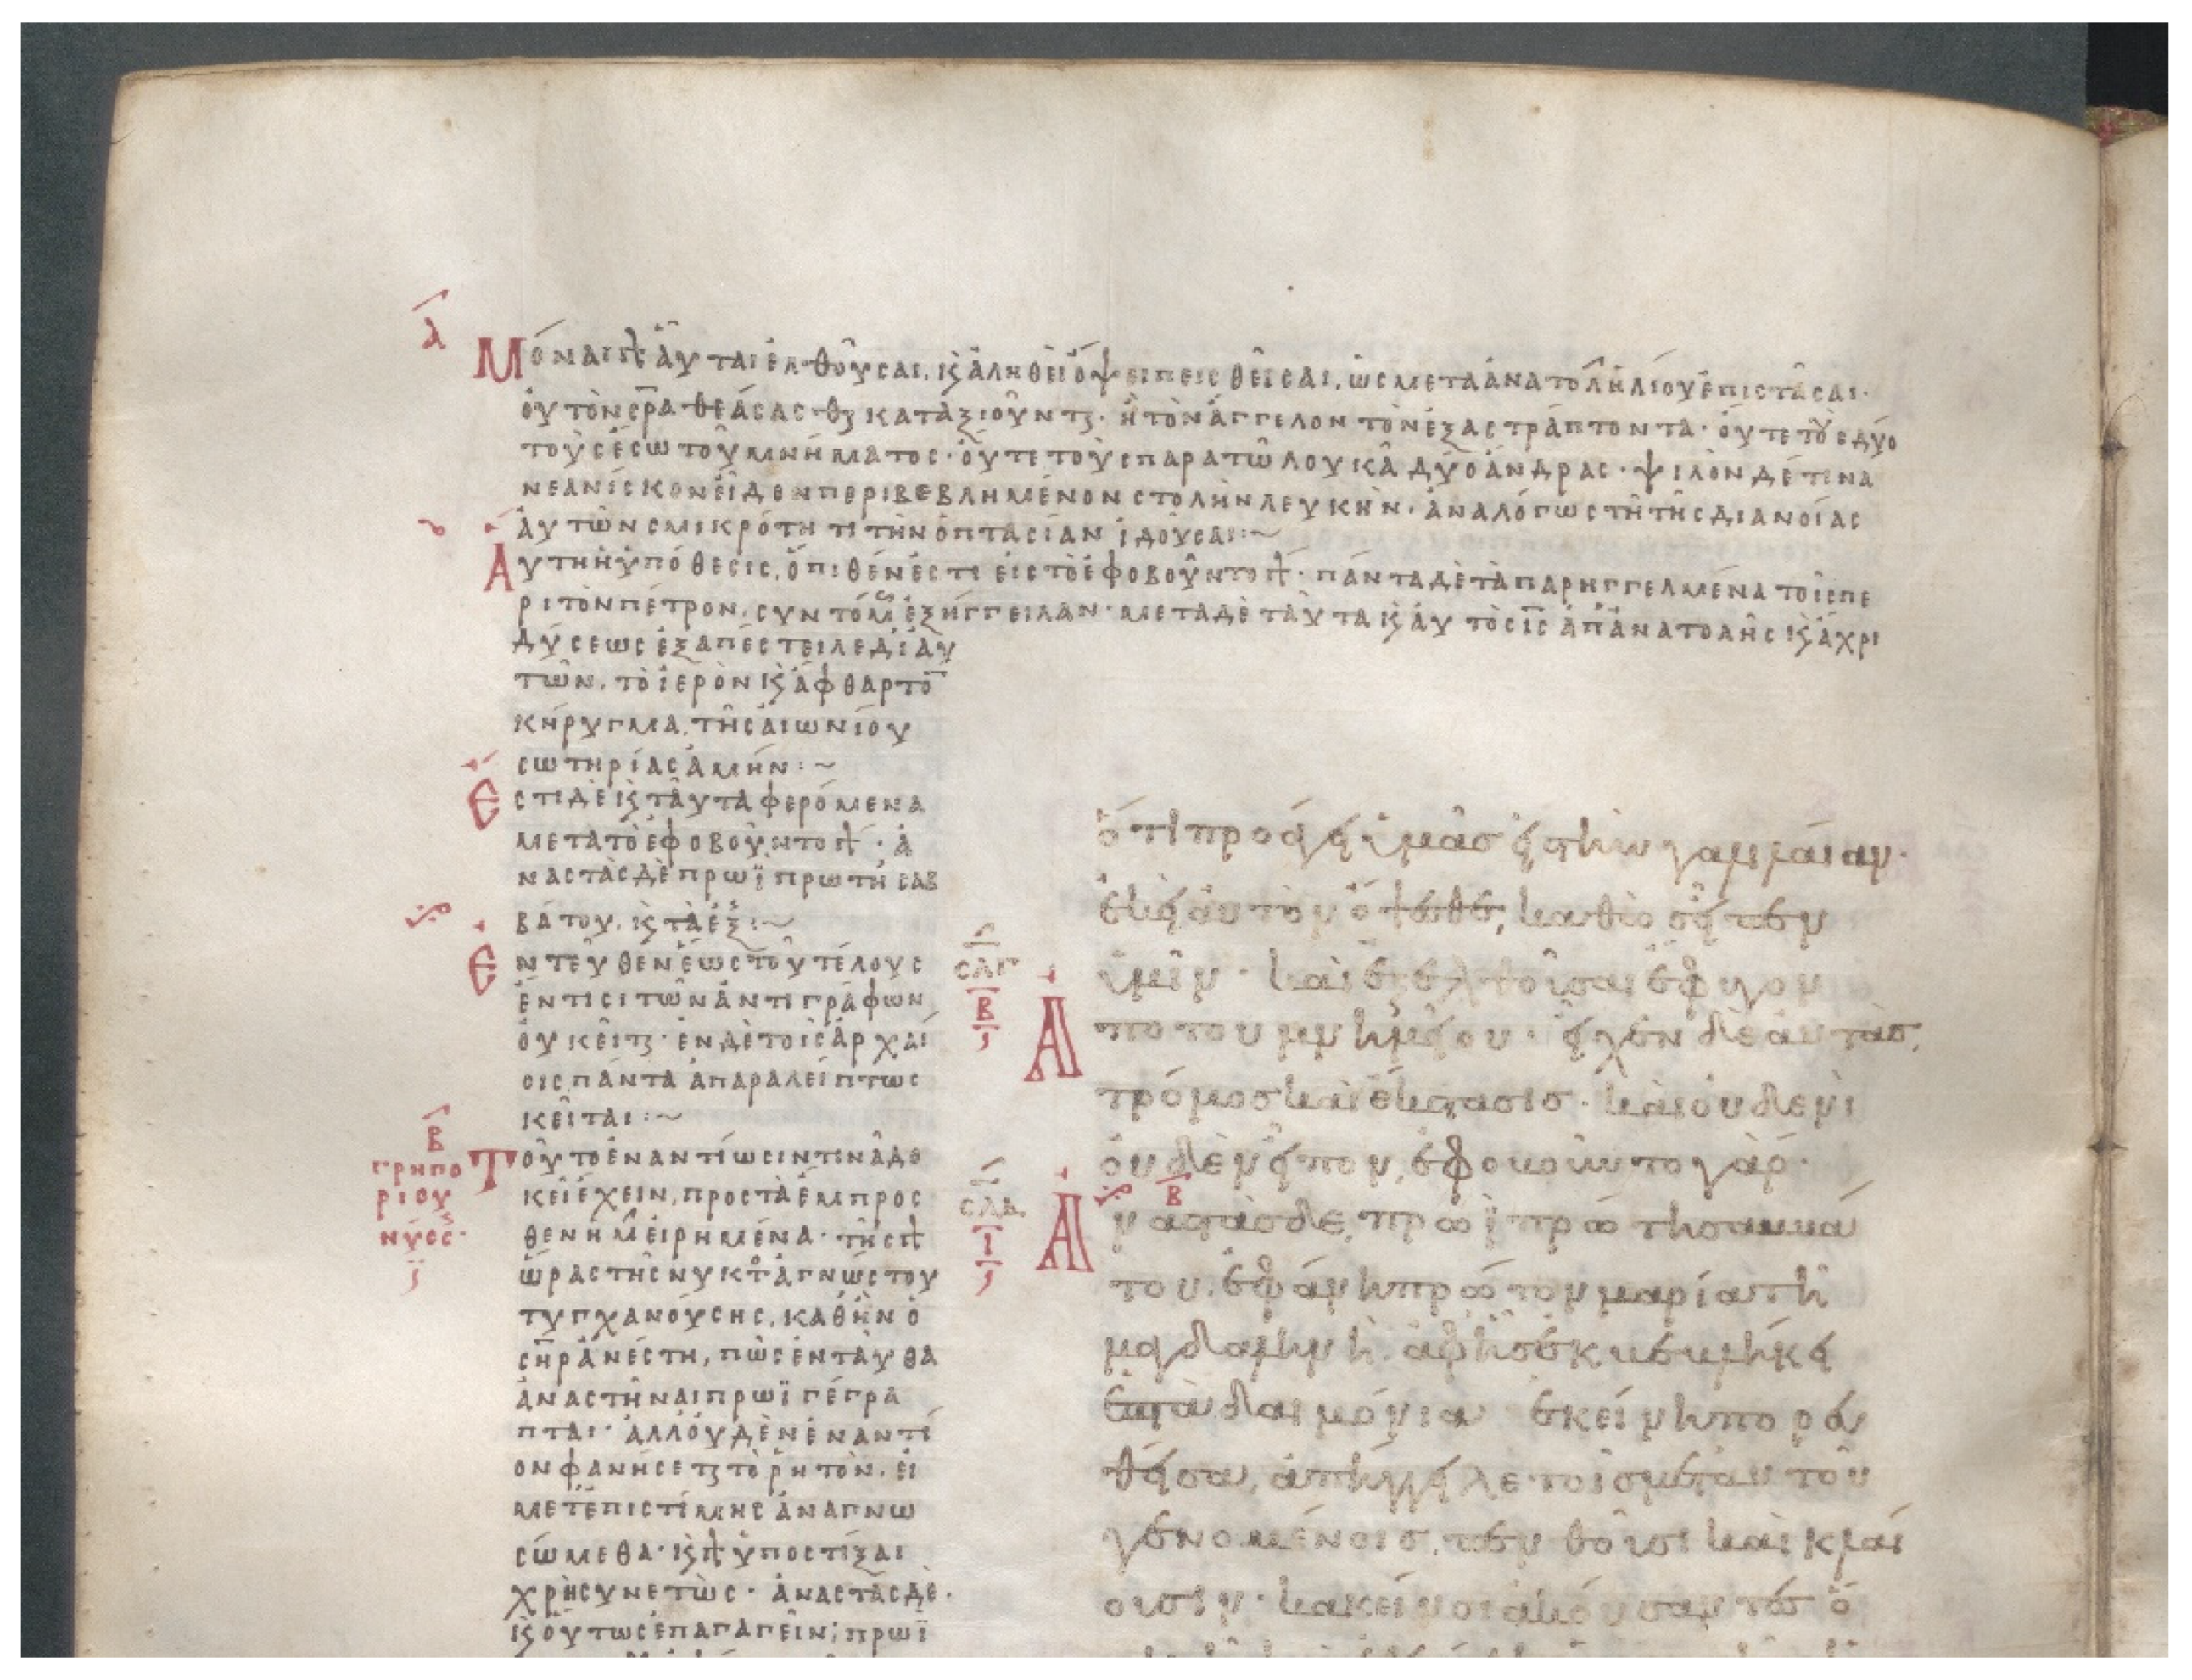 λ
Μόναι γὰρ αὗται ἐλθοῦσαι, κ ἀληθεῖ ὄψει πεισθεῖσαι, ὡς μετὰ ἀνατολ ἡλίου ἐπιστᾶσαι·
οὐ τὸν σρα θεάσασθαι καταξιοῦνται· ἢ τὸν ἄγγελον τὸν ἐξαστράπτοντα· οὔτε τοὺς δύο
τοὺς ἔσω τοῦ μνήματος· οὔτε τοὺς παρὰ τῶ λουκᾶ δύο ἄνδρας· ψιλὸν δέ τινα
νεανίσκον εἶδον περιβεβλημένον στολὴν λευκήν· ἀναλόγως τῆ τῆς διανοίας
αὐτῶν σμικρότητι τὴν ὀπτασίαν ἰδοῦσαι:~
Αὕτη ἡ ὑπόθεσις, ὄπιθέν ἐστι εἰς τὸ ἐφοβοῦντο γάρ· πάντα δὲ τὰ παρηγγελμένα τοῖς πε
ρὶ τὸν πέτρον, συντόμως ἐξήγγειλαν· μετὰ δὲ ταῦτα κ αὐτὸς ις ἀπ ἀνατολῆς κ ἄχρι
δύσεως ἐξαπέστειλε δι αὐ
τῶν, τὸ ἱερὸν κ ἄφθαρτο
κήρυγμα, τῆς αἰωνίου
σωτηρίας ἀμήν:~
Ἔστι δὲ κ ταῦτα φερόμενα
μετὰ τὸ ἐφοβοῦντο γάρ· ἀ
ναστὰς δὲ πρωῒ πρώτη σαβ
βάτου, κ τὰ ἑξ:~
Ἐντεῦθεν ἕως τοῦ τέλους
ἔν τισι τῶν ἀντιγράφων
οὐ κεῖται· ἐν δὲ τοῖς ἀρχαί
οις πάντα ἀπαράλείπτως
κεῖται:~
Β
γρηγο
ρίου
νύσς·
Τοῦτο ἐναντίωσίν τινα δο
κεῖ ἔχειν, πρὸς τὰ ἔμπροσ
θεν ἡμ εἰρημένα· τῆς γὰρ
ὥρας τῆς νυκτὸς ἀγνώστου
τυγχανούσης, καθ ἣν ὁ
σηρ ἀνέστη, πῶς ἐνταῦθα
ἀναστῆναι πρωῒ γέγρα
πται· ἀλλ οὐδὲν ἐναντί
ον φανήσεται τὸ ῥητὸν, εἰ
μετ ἐπιστήμης ἀναγνω
σώμεθα· κ γὰρ ὑποστίξαι
χρὴ συνετῶς· ἀναστὰς δέ·
κ οὕτως ἐπαγαγεῖν; πρωῒ
ὅτι προάγει ὑμᾶς εἰς τὴν γαλιλαίαν·
ἐκεῖ αὐτὸν ὄψεσθε, καθὼς εἶπεν
ὑμῖν· καὶ ἐξελθοῦσαι ἔφυγον
σλγ
Β
Ἀπὸ τοῦ μνημείου· εἶχεν δὲ αὐτὰς,
τρόμος καὶ ἔκστασις· καὶ οὐδενὶ
οὐδὲν εἶπον, ἐφοβοῦντο γάρ·
σλδ
Ι
Ἀναστὰς δὲ, πρωῒ πρώτη σαββά
του, ἐφάνη πρῶτον μαρία τῆ
μαγδαληνῆ, ἀφ ἧς ἐκβεβλήκει
ἑπτὰ δαιμόνια ἐκείνη πορευ
θεῖσα, ἀπήγγειλε τοῖς μετ αὐτοῦ
γενομένοις, πενθοῦσι καὶ κλαί
ουσιν· κακεῖνοι ἀκούσαντες ὅ